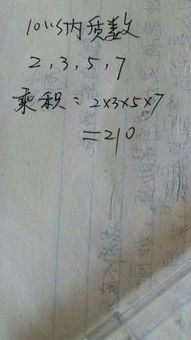 10以内质数
2,3,5,7
乘积:2×3×5×7
=210